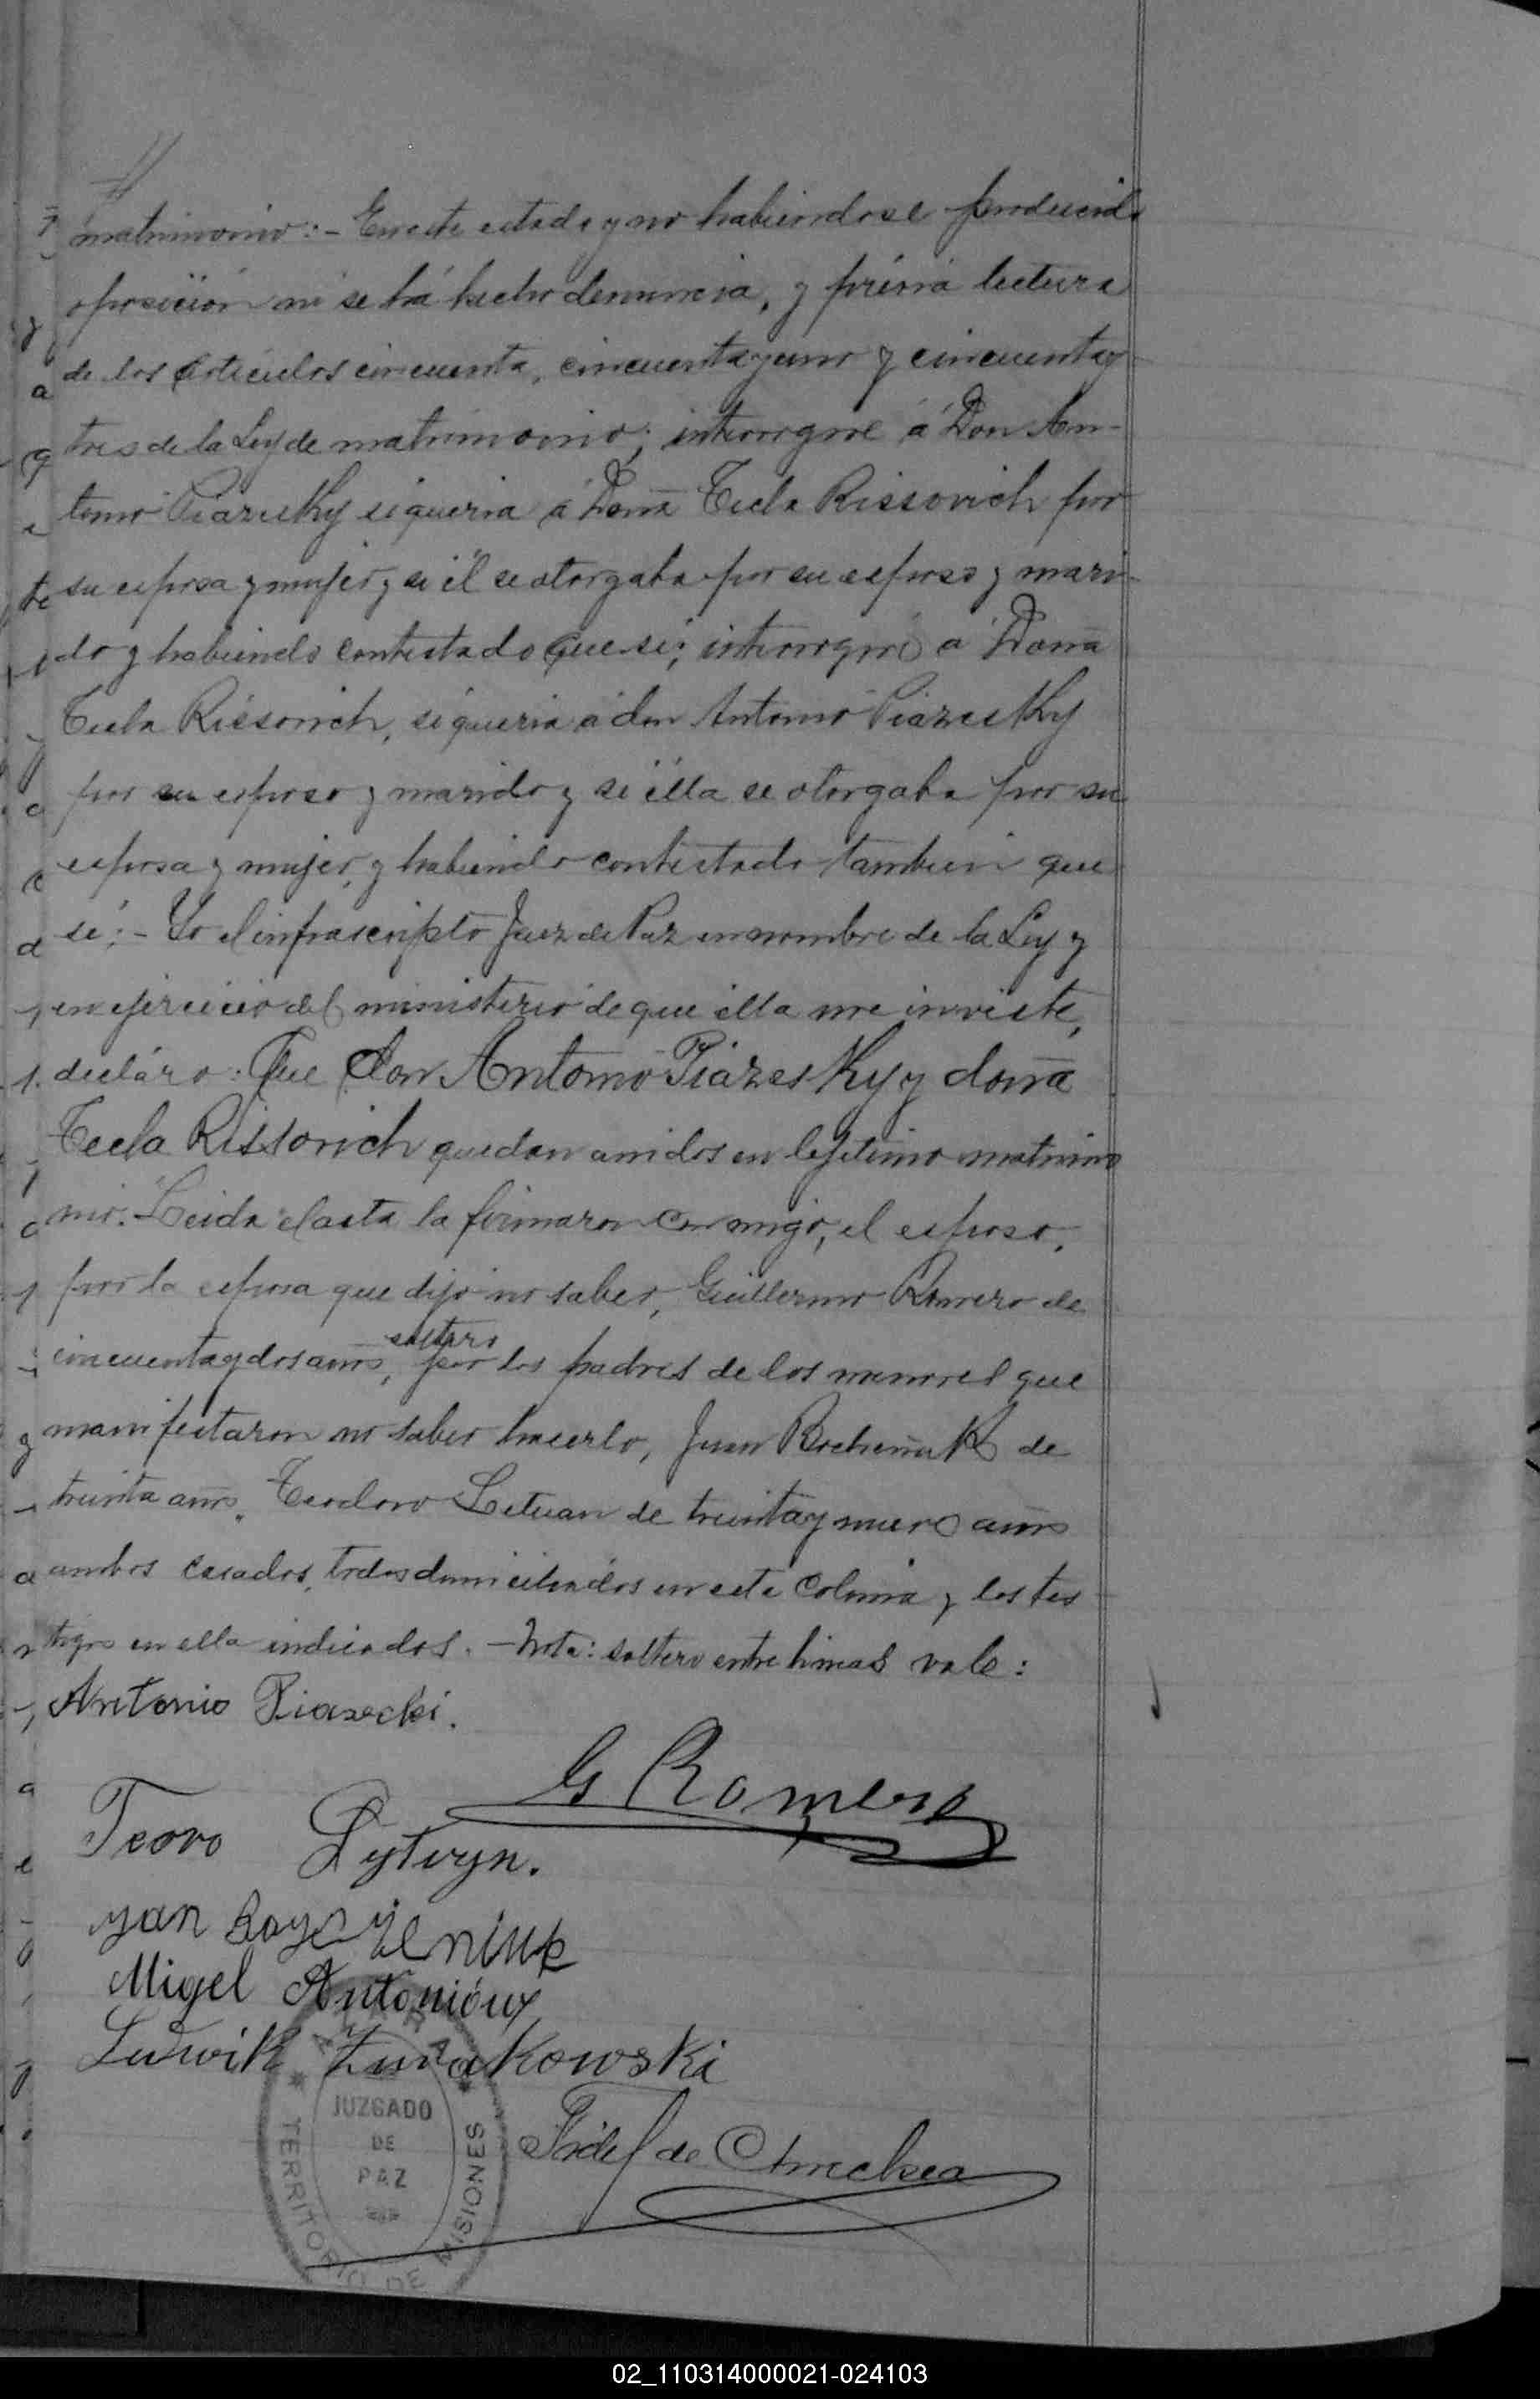 matrimonio:- En este estado y no habiendose producido
oposición ni se há hecho denuncia, y prévia lectura
de los artículos cincuenta, cincuenta y uno y cincuenta y
tres de la Ley de matrimonio; interrogué á Don An-
tonio Piazesky si queria á Doña Tecla Rissovich por
su esposa y mujer y si él se otorgaba por su esposo y mari-
do y habiendo contestado que si; interrogué a Doña
Tecla Rissovich, si queria a don Antonio Piazesky
por su esposo y marido y si élla se otorgaba por su
esposa y mujer, y habiendo contestado tambien que
si;- Yo el infrascripto Juez de Paz en nombre de la Ley y
en ejercicio del ministerio de que élla me inviste,
decláro: Que don Antonio Piazesky y doña
Tecla Rissovich quedan unidos en lejitimo matrimo
nio. Leida el acta la firmaron conmigo, el esposo,
por la esposa que dijo no saber, Guillermo Romero de
cincuenta y dos años, soltero por los padres de los menores que
manifestaron no saber hacerlo, Juan de
treinta años, Teodoro Letuan de treinta y nueve años
ambos casados, todos domiciliados en esta Colonia y los tes
tigos en ella indicados. - Nota: soltero entre lineas vale:
Antonio Piasecki.
G Romero
Teoro Lytvyn.
Jan
Migel
Ludwik Zurakowski
Fidel de
JUZGADO
DE
PAZ
TERRITORIO DE MISIONES
02_110314000021-024103